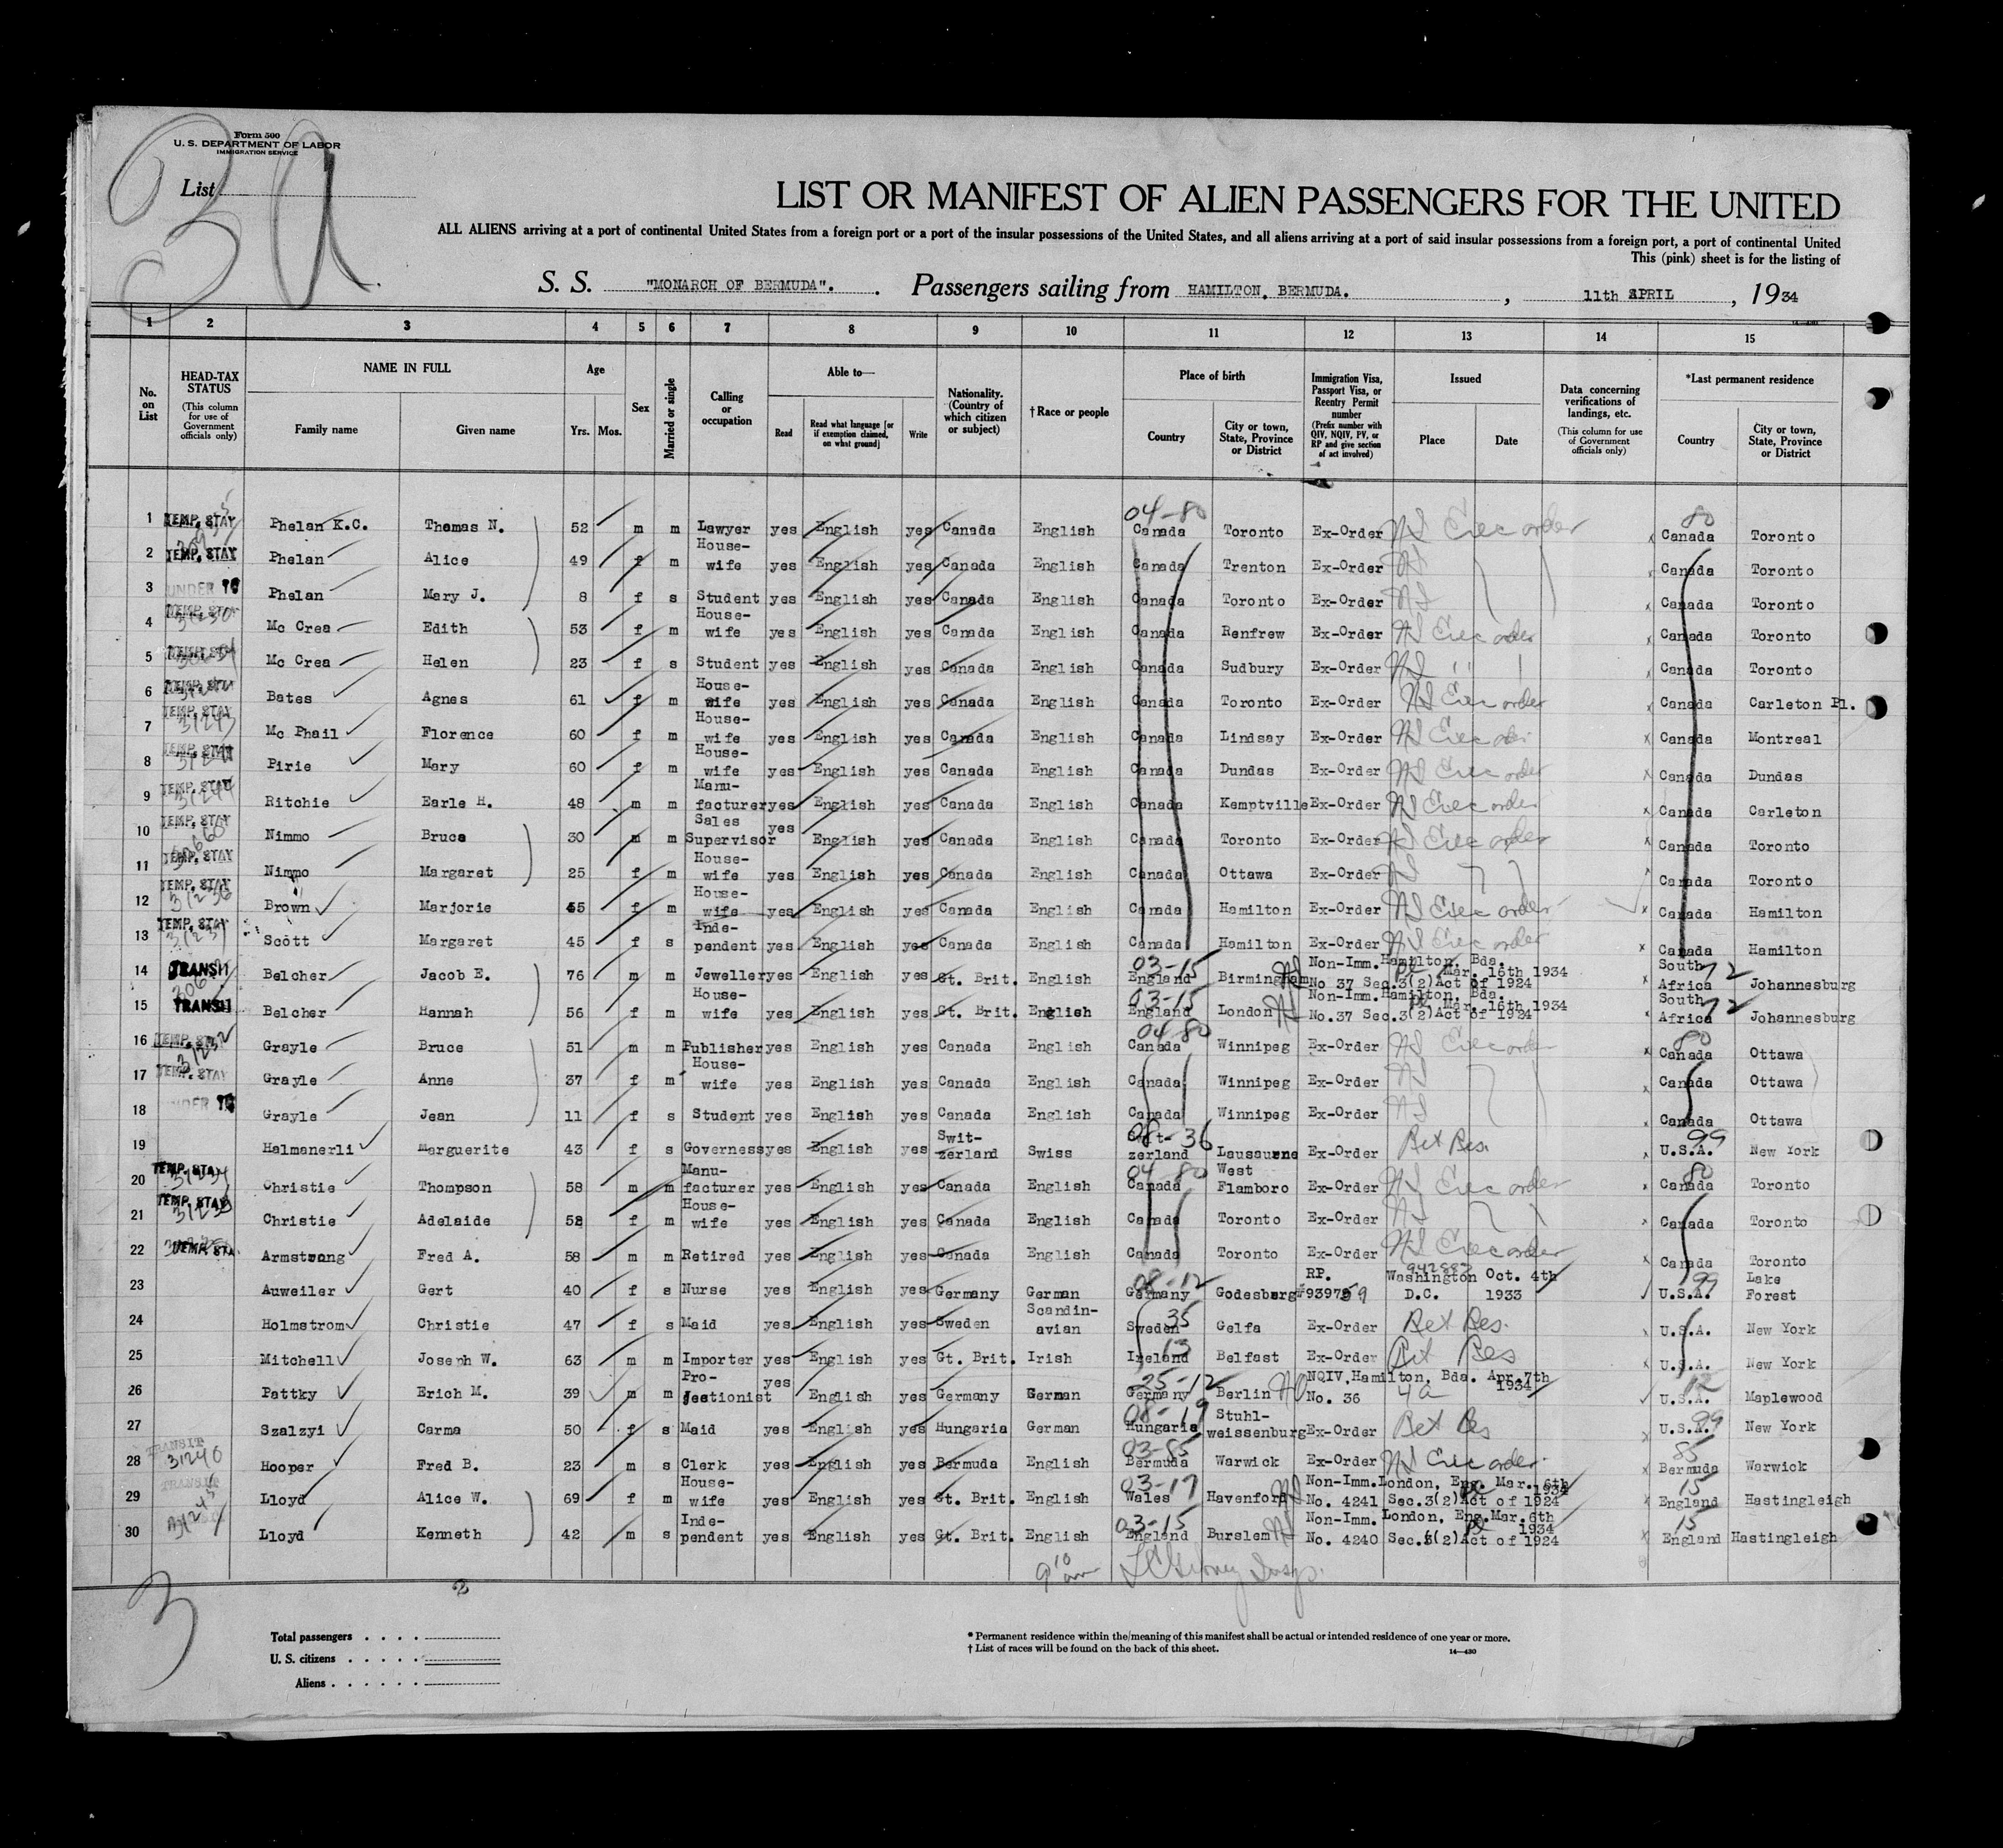 Form 500
U. S. DEPARTMENT OF LABOR
IMMIGRATION SERVICE
3a
List
LIST OR MANIFEST OF ALIEN PASSENGERS FOR THE UNITED
ALL ALIENS arriving at a port of continental United States from a foreign port or a port of the insular possessions of the United States, and all aliens arriving at a port of said insular possessions from a foreign port, a port of continental United
This (pink) sheet is for the listing of
S. S. "MONARCH OF BERMUDA". Passengers sailing from HAMILTON, BERMUDA. , 11th APRIL , 1934
1 2 3 4 5 6 7 8 9 10 11 12 13 14 15
No. on List HEAD-TAX STATUS (This column for use of Government officials only) NAME IN FULL Family name Given name Age Yrs. Mos. Sex Married or single Calling or occupation Able to— Read Read what language [or if exemption claimed, on what ground] Write Nationality. (Country of which citizen or subject) †Race or people Place of birth Country City or town, State, Province or District Immigration Visa, Passport Visa, or Reentry Permit number (Prefix number with QIV, NQIV, PV, or RP and give section of act involved) Issued Place Date Data concerning verifications of landings, etc. (This column for use of Government officials only) *Last permanent residence Country City or town, State, Province or District
1 TEMP. STAY Phelan K.C. Thomas N. 52 m m Lawyer yes English yes Canada English 04-80 Canada Toronto Ex-Order NI Exec order 80 Canada Toronto
2 TEMP. STAY Phelan Alice 49 f m House-wife yes English yes Canada English Canada Trenton Ex-Order NI Canada Toronto
3 UNDER 16 Phelan Mary J. 8 f s Student yes English yes Canada English Canada Toronto Ex-Order NI Canada Toronto
4 TEMP. STAY Mc Crea Edith 53 f m House-wife yes English yes Canada English Canada Renfrew Ex-Order NI Exec order Canada Toronto
5 TEMP. STAY Mc Crea Helen 23 f s Student yes English yes Canada English Canada Sudbury Ex-Order NI " Canada Toronto
6 TEMP. STAY Bates Agnes 61 f m House-wife yes English yes Canada English Canada Toronto Ex-Order NI Exec order Canada Carleton Pl.
7 TEMP. STAY 31243 Mc Phail Florence 60 f m House-wife yes English yes Canada English Canada Lindsay Ex-Order NI Exec Canada Montreal
8 TEMP. STAY Pirie Mary 60 f m House-wife yes English yes Canada English Canada Dundas Ex-Order NI Exec order Canada Dundas
9 TEMP. STAY 31244 Ritchie Earle H. 48 m m Manu-facturer yes English yes Canada English Canada Kemptville Ex-Order NI Exec order Canada Carleton
10 TEMP. STAY Nimmo Bruce 30 m m Sales Supervisor yes English yes Canada English Canada Toronto Ex-Order NI Exec order Canada Toronto
11 TEMP. STAY Nimmo Margaret 25 f m House-wife yes English yes Canada English Canada Ottawa Ex-Order NI Canada Toronto
12 TEMP. STAY 31236 Brown Marjorie 55 f m House-wife yes English yes Canada English Canada Hamilton Ex-Order NI Exec order Canada Hamilton
13 TEMP. STAY Scott Margaret 45 f s Inde-pendent yes English yes Canada English Canada Hamilton Ex-Order NI Exec order Canada Hamilton
14 TRANSIT Belcher Jacob E. 76 m m Jeweller yes English yes Gt. Brit. English 03-15 England Birmingham Non-Imm. Hamilton, Bda. Mar. 16th 1934 No 37 Sec.3(2)Act of 1924 South Africa 72 Johannesburg
15 TRANSIT Belcher Hannah 56 f m House-wife yes English yes Gt. Brit. English 03-15 England London Non-Imm. Hamilton, Bda. Mar. 16th 1934 No.37 Sec.3(2)Act of 1924 South Africa 72 Johannesburg
16 TEMP. STAY 31232 Grayle Bruce 51 m m Publisher yes English yes Canada English 04-80 Canada Winnipeg Ex-Order NI Exec order 80 Canada Ottawa
17 TEMP. STAY Grayle Anne 37 f m House-wife yes English yes Canada English Canada Winnipeg Ex-Order NI Canada Ottawa
18 UNDER 16 Grayle Jean 11 f s Student yes English yes Canada English Canada Winnipeg Ex-Order NI Canada Ottawa
19 Halmanerli Marguerite 43 f s Governess yes English yes Swit-zerland Swiss 08-36 Swit-zerland Lausaunne Ex-Order Ret Res. 99 U.S.A. New York
20 TEMP. STAY Christie Thompson 58 m m Manu-facturer yes English yes Canada English 04-80 Canada West Flamboro Ex-Order NI Exec order 80 Canada Toronto
21 TEMP. STAY Christie Adelaide 52 f m House-wife yes English yes Canada English Canada Toronto Ex-Order NI Canada Toronto
22 TEMP. STAY Armstrong Fred A. 58 m m Retired yes English yes Canada English Canada Toronto Ex-Order NI Exec order Canada Toronto
23 Auweiler Gert 40 f s Nurse yes English yes Germany German 08-12 Germany Godesberg RP. #93979 Washington D.C. Oct. 4th 1933 99 U.S.A. Lake Forest
24 Holmstrom Christie 47 f s Maid yes English yes Sweden Scandin-avian 35 Sweden Gelfa Ex-Order Ret Res. U.S.A. New York
25 Mitchell Joseph W. 63 m m Importer yes English yes Gt. Brit. Irish 13 Ireland Belfast Ex-Order Ret Res U.S.A. New York
26 Pattky Erich M. 39 m m Pro-jectionist yes English yes Germany German 25-12 Germany Berlin NQIV, Hamilton, Bda. Apr. 7th 1934 No. 36 4a 12 U.S.A. Maplewood
27 Szalzyi Carma 50 f s Maid yes English yes Hungaria German 08-19 Hungaria Stuhl-weissenburg Ex-Order Ret Res 99 U.S.A. New York
28 TRANSIT 31240 Hooper Fred B. 23 m s Clerk yes English yes Bermuda English 03-85 Bermuda Warwick Ex-Order NI Exec order 85 Bermuda Warwick
29 TRANSIT Lloyd Alice W. 69 f m House-wife yes English yes Gt. Brit. English 03-17 Wales Havenford Non-Imm. London, Eng. Mar. 6th 1934 No. 4241 Sec.3(2)Act of 1924 15 England Hastingleigh
30 Lloyd Kenneth 42 m s Inde-pendent yes English yes Gt. Brit. English 03-15 England Burslem Non-Imm. London, Eng. Mar. 6th 1934 No. 4240 Sec.3(2)Act of 1924 15 England Hastingleigh
9 10 am
3 2
Total passengers
U. S. citizens
Aliens
* Permanent residence within the meaning of this manifest shall be actual or intended residence of one year or more.
† List of races will be found on the back of this sheet.
14—430